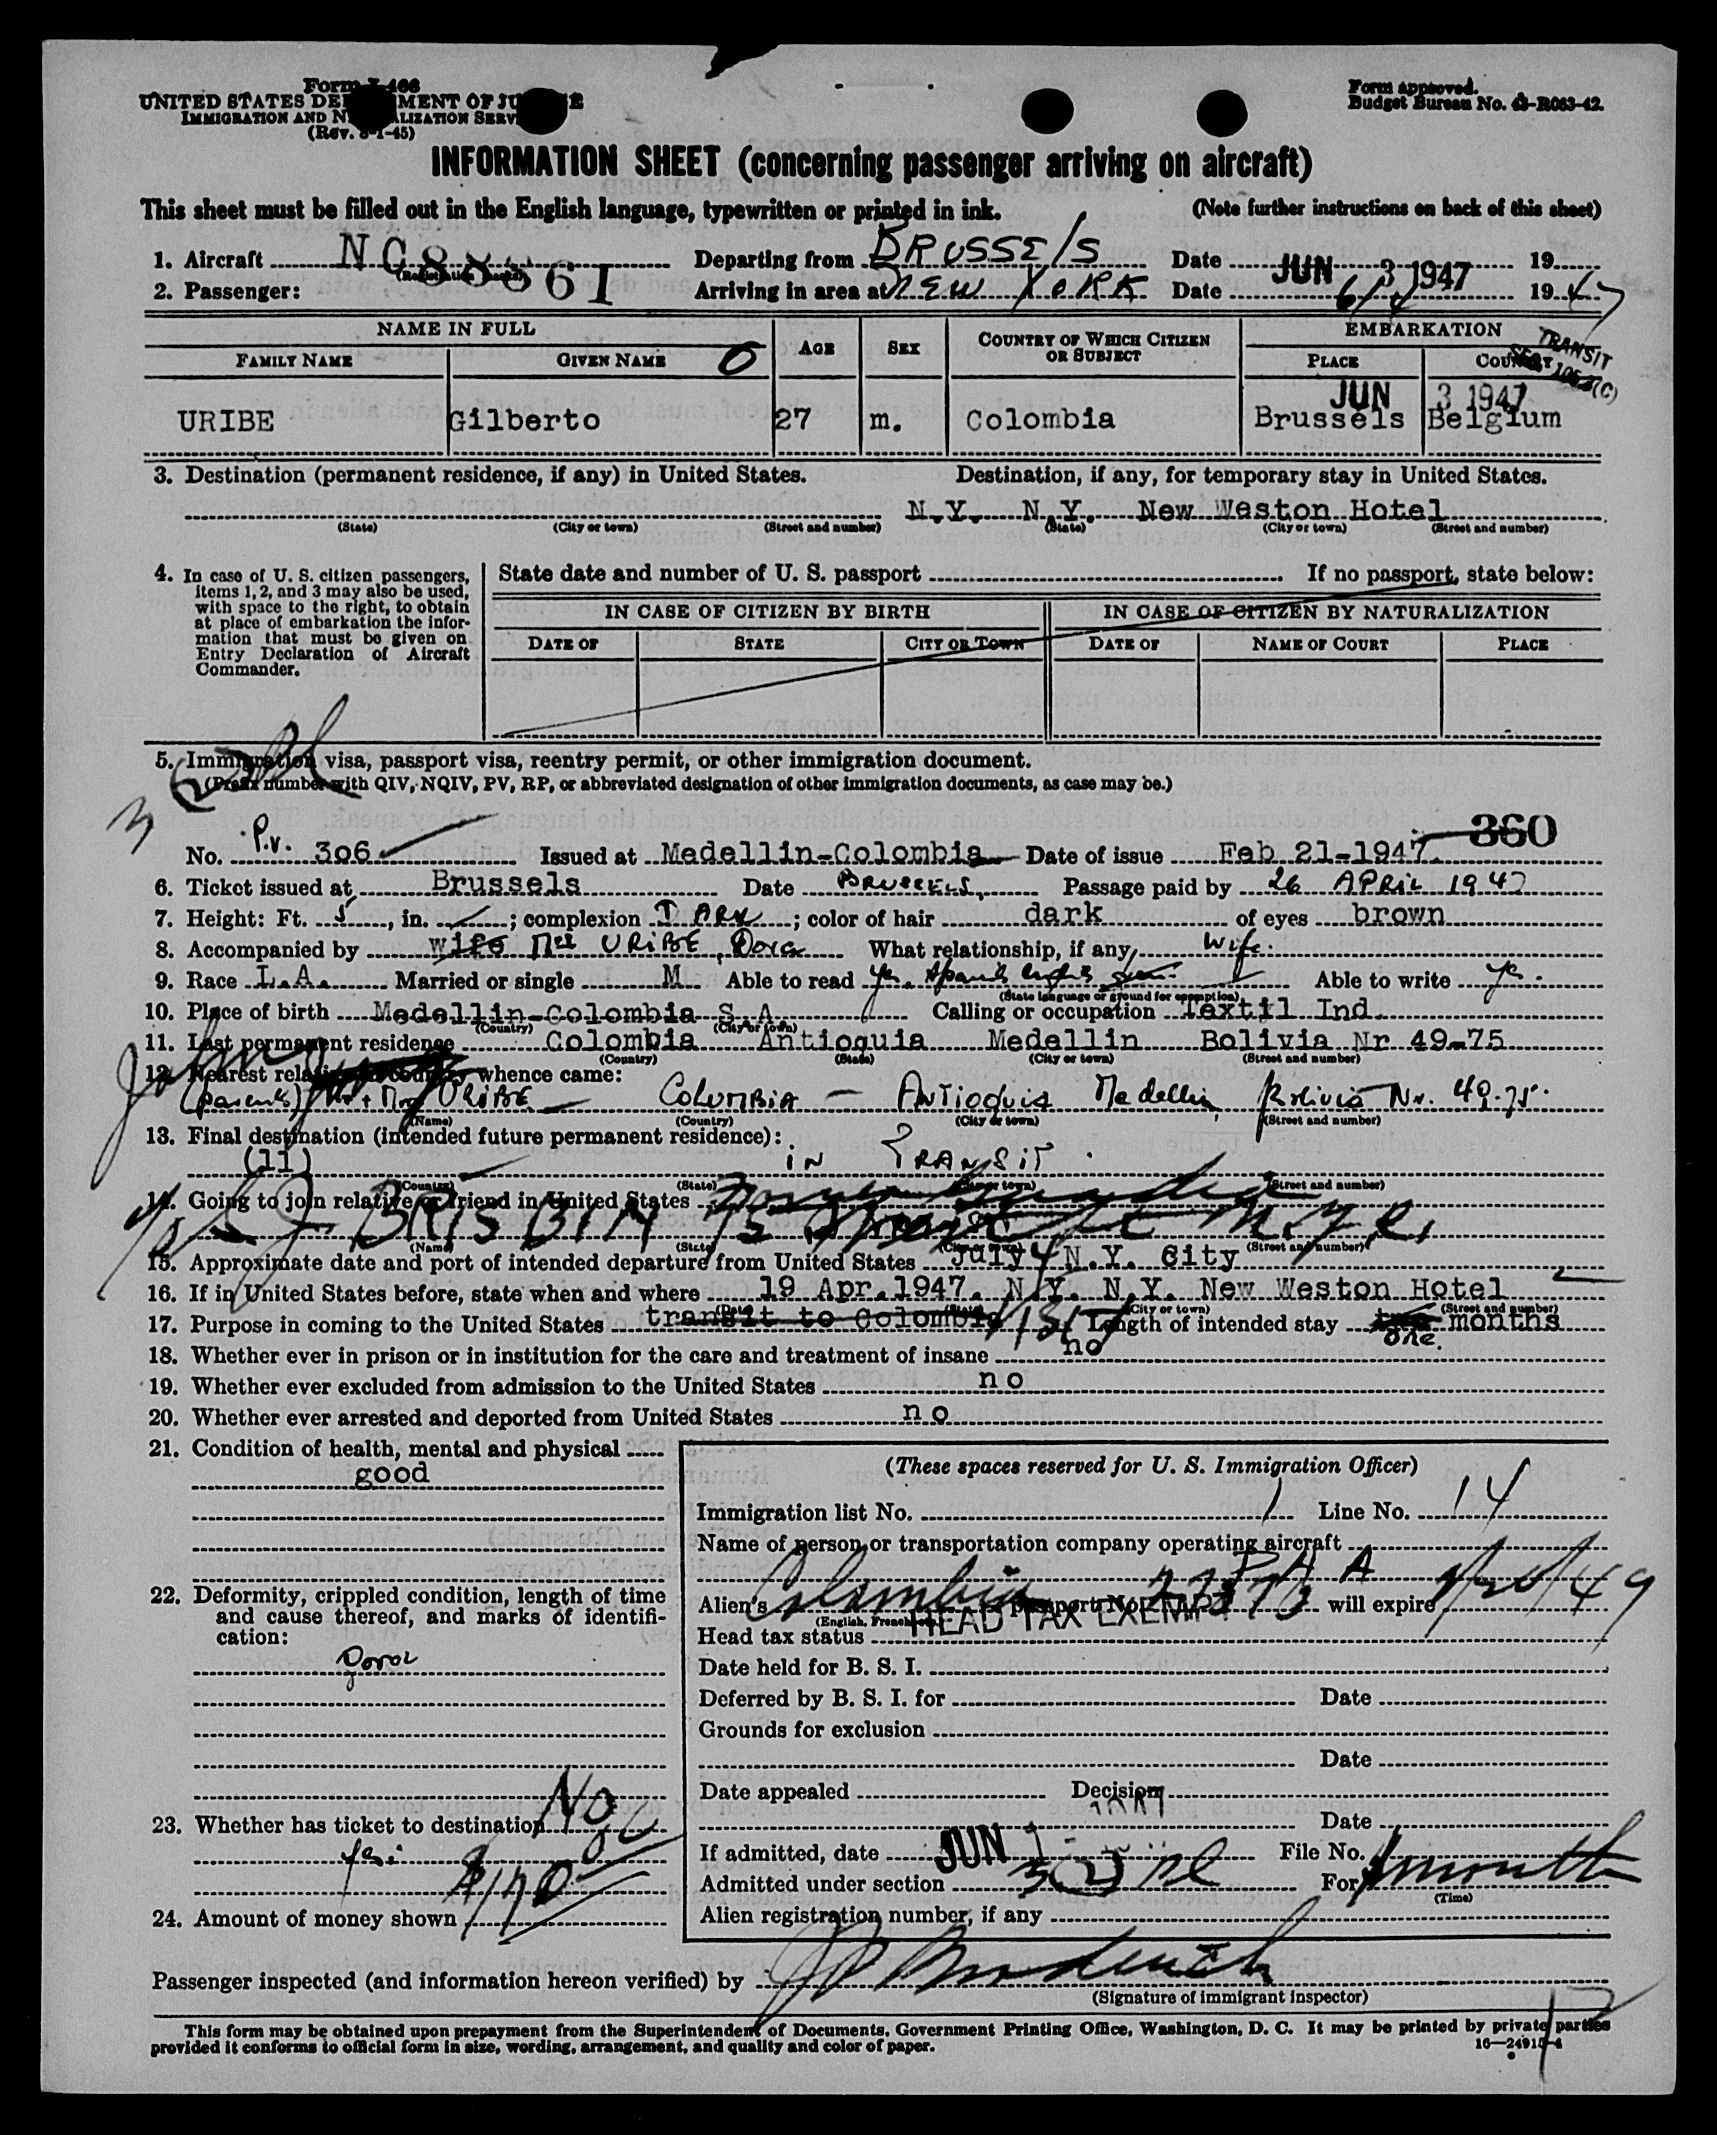 Form I-466
UNITED STATES DEPARTMENT OF JUSTICE
IMMIGRATION AND NATURALIZATION SERVICE
(Rev. 8-1-45)
Form approved.
Budget Bureau No. 43-R063-42.
INFORMATION SHEET (concerning passenger arriving on aircraft)
This sheet must be filled out in the English language, typewritten or printed in ink. (Note further instructions on back of this sheet)
1. Aircraft NC88861 Departing from BRUSSELS Date JUN 3 1947 19
(Registration marks)
2. Passenger: Arriving in area at NEW YORK Date 6/4 1947
NAME IN FULL AGE SEX COUNTRY OF WHICH CITIZEN OR SUBJECT EMBARKATION
FAMILY NAME GIVEN NAME PLACE COUNTRY
TRANSIT
JUN 3 1947
URIBE Gilberto 27 m. Colombia Brussels Belgium
3. Destination (permanent residence, if any) in United States. Destination, if any, for temporary stay in United States.
N.Y. N.Y. New Weston Hotel
(State) (City or town) (Street and number) (State) (City or town) (Street and number)
4. In case of U. S. citizen passengers, items 1, 2, and 3 may also be used, with space to the right, to obtain at place of embarkation the information that must be given on Entry Declaration of Aircraft Commander.
State date and number of U. S. passport If no passport, state below:
IN CASE OF CITIZEN BY BIRTH IN CASE OF CITIZEN BY NATURALIZATION
DATE OF STATE CITY OR TOWN DATE OF NAME OF COURT PLACE
5. Immigration visa, passport visa, reentry permit, or other immigration document.
(Prefix number with QIV, NQIV, PV, RP, or abbreviated designation of other immigration documents, as case may be.)
360
No. P.V. 306 Issued at Medellin-Colombia Date of issue Feb 21-1947.
6. Ticket issued at Brussels Date BRUSSELS, Passage paid by 26 APRIL 1947
7. Height: Ft. 5, in. ; complexion DARK; color of hair dark of eyes brown
8. Accompanied by wife Mrs URIBE, Dora What relationship, if any, wife.
9. Race L.A. Married or single M Able to read yes. Spanish english Able to write yes.
(State language or ground for exemption)
10. Place of birth Medellin-Colombia S.A. Calling or occupation Textil Ind.
(Country) (City or town)
11. Last permanent residence Colombia Antioquia Medellin Bolivia Nr 49-75
(Country) (State) (City or town) (Street and number)
12. Nearest relative in country whence came:
(parents) Mr + Mrs URIBE COLUMBIA - ANTIOQUIA Medellin, Bolivia Nr. 49-75.
(Name) (Country) (City or town) (Street and number)
13. Final destination (intended future permanent residence):
(11) IN TRANSIT
(Country) (State) (City or town) (Street and number)
14. Going to join relative or friend in United States
BRISBIN
(Name) (State) (City or town) (Street and number)
15. Approximate date and port of intended departure from United States July 4 N.Y. City
16. If in United States before, state when and where 19 Apr.1947. N.Y. N.Y. New Weston Hotel
(Date) (State) (City or town) (Street and number)
17. Purpose in coming to the United States transit to Colombia Length of intended stay two one. months
18. Whether ever in prison or in institution for the care and treatment of insane no
19. Whether ever excluded from admission to the United States no
20. Whether ever arrested and deported from United States no
21. Condition of health, mental and physical
good
22. Deformity, crippled condition, length of time and cause thereof, and marks of identification:
23. Whether has ticket to destination No
yes.
$1700
24. Amount of money shown
(These spaces reserved for U. S. Immigration Officer)
Immigration list No. 1 Line No. 14
Name of person or transportation company operating aircraft
P A A
Alien's Colombia passport No. will expire
(English, French, etc.)
Head tax status HEAD TAX EXEMPT
Date held for B. S. I.
Deferred by B. S. I. for Date
Grounds for exclusion
Date
Date appealed Decision
Date
If admitted, date JUN File No.
Admitted under section 3(2) For 1 month
(Time)
Alien registration number, if any
Passenger inspected (and information hereon verified) by
(Signature of immigrant inspector)
This form may be obtained upon prepayment from the Superintendent of Documents, Government Printing Office, Washington, D. C. It may be printed by private parties
provided it conforms to official form in size, wording, arrangement, and quality and color of paper.
16—24915-4